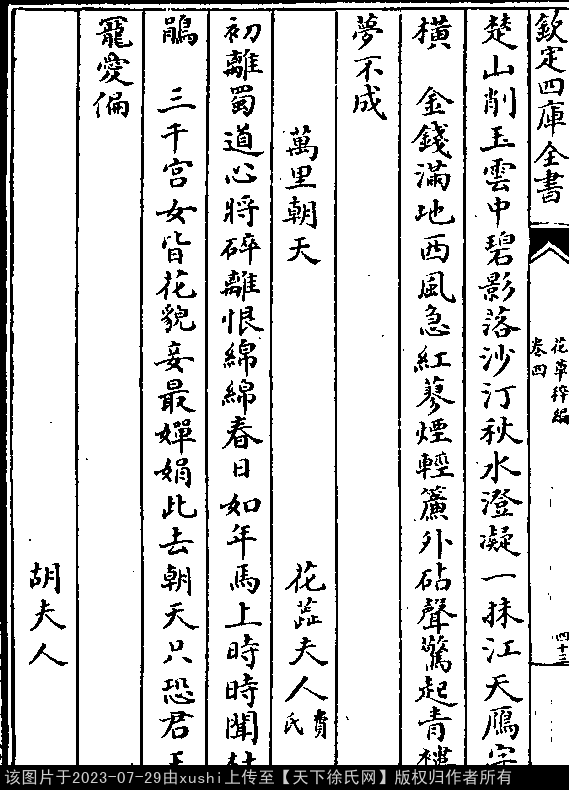 欽定四庫全書
花草稡編
卷四
四十三
楚山削玉雲中碧影落沙汀秋水澄凝一抹江天鴈字
橫　金錢滿地西風急紅蓼煙輕簾外砧聲驚起青樓
夢不成
萬里朝天　花蕊夫人費氏
初離蜀道心將碎離恨綿綿春日如年馬上時時聞杜
鵑　三千宫女皆花貌妾最嬋娟此去朝天只恐君王
寵愛偏
胡夫人
该图片于2023-07-29由xushi上传至【天下徐氏网】版权归作者所有